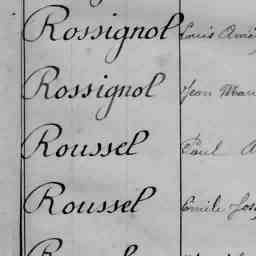 Rossignol Louis Amé
Rossignol Jean Mau
Roussel Paul A
Roussel Emile Jos